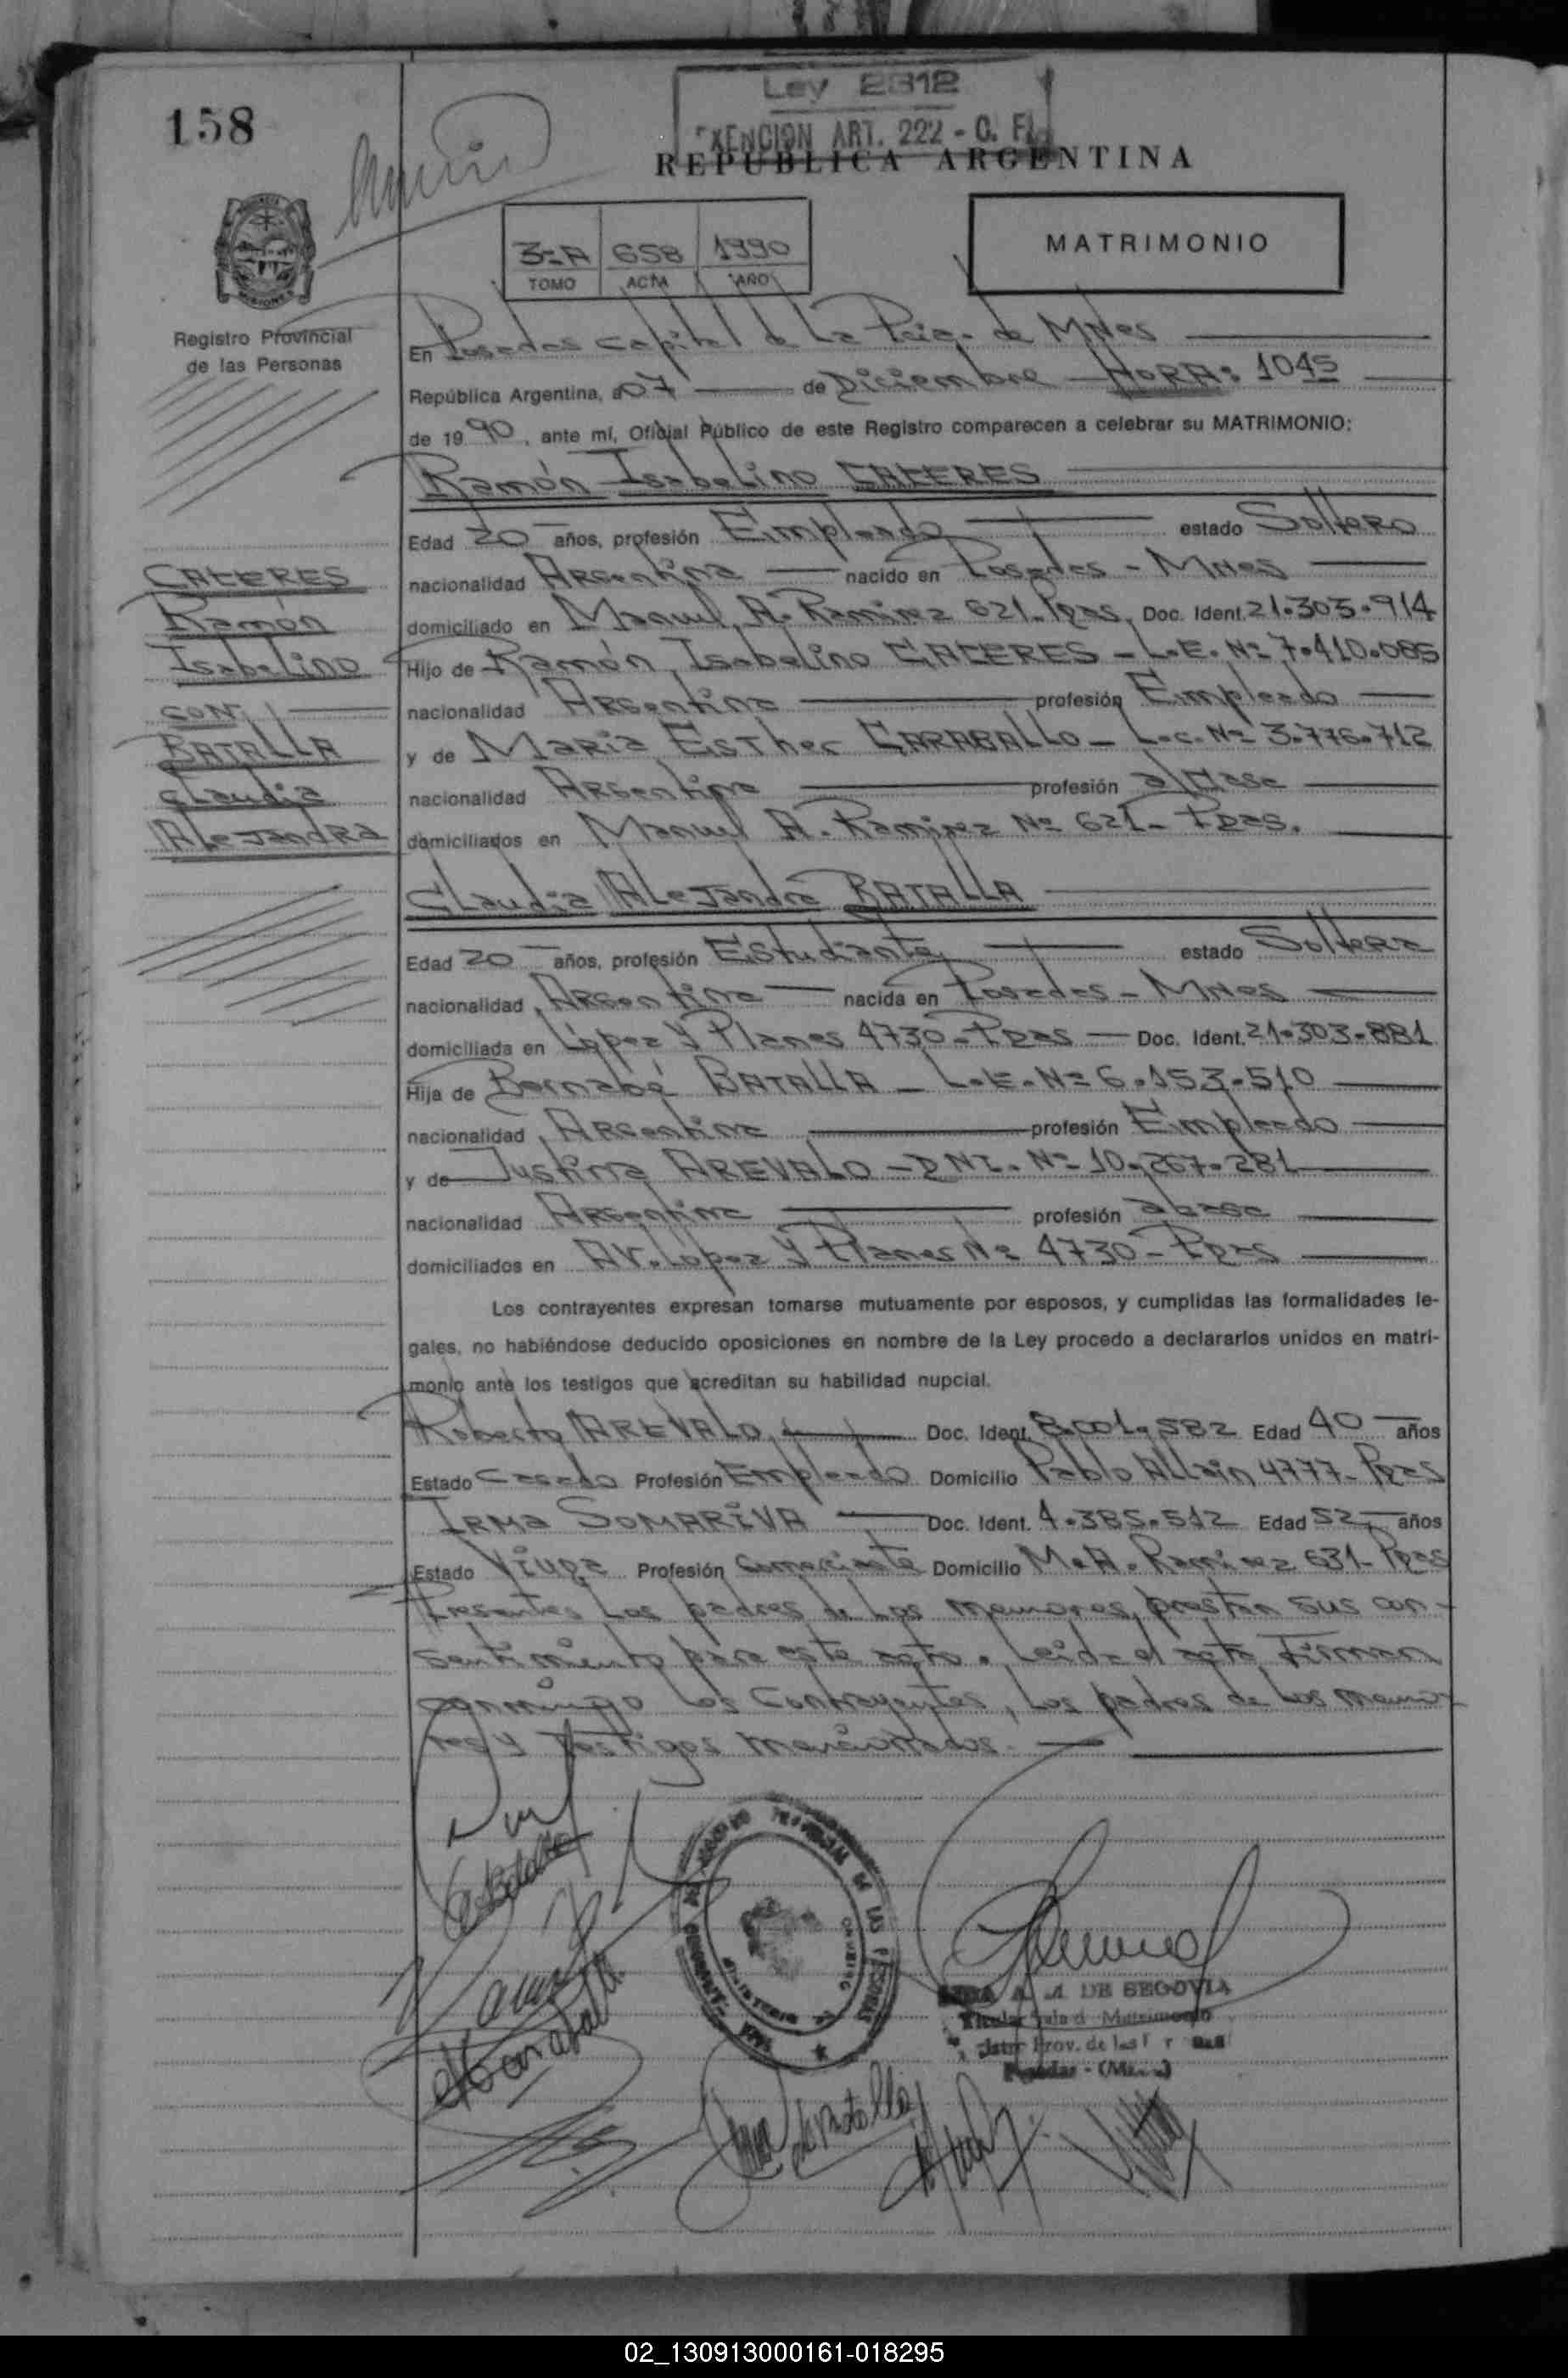 158
Ley 2312
EXENCION ART. 222 - C. F.
REPUBLICA ARGENTINA
3=A 658 1990
TOMO ACTA AÑO
MATRIMONIO
Registro Provincial
de las Personas
En Posadas capital de La Pcia. de Mnes
República Argentina, a 07 de Diciembre HORA: 1045
de 19 90, ante mí, Oficial Público de este Registro comparecen a celebrar su MATRIMONIO:
Ramón Isabelino CACERES
Edad 20 años, profesión Empleado estado Soltero
nacionalidad Argentina nacido en Posadas - Mnes
domiciliado en Manuel A. Ramirez 621 - Pdas. Doc. Ident. 21.303.914
Hijo de Ramón Isabelino CACERES - L.E. Nº 7.410.085
nacionalidad Argentina profesión Empleado
y de Maria Esther CARABALLO - L.C. Nº 3.776.712
nacionalidad Argentina profesión a/casa
domiciliados en Manuel A. Ramirez Nº 621 - Pdas.
CACERES
Ramón
Isabelino
CON
BATALLA
Claudia
Alejandra
Claudia Alejandra BATALLA
Edad 20 años, profesión Estudiante estado Soltera
nacionalidad Argentina nacida en Posadas - Mnes
domiciliada en López Y Planes 4730 - Pdas Doc. Ident. 21.303.881
Hija de Bernabé BATALLA - L.E. Nº 6.153.510
nacionalidad Argentina profesión Empleado
y de Justina AREVALO - DNI. Nº 10.267.281
nacionalidad Argentina profesión a casa
domiciliados en Av. Lopez Y Planes Nº 4730 - Pdas
Los contrayentes expresan tomarse mutuamente por esposos, y cumplidas las formalidades le-
gales, no habiéndose deducido oposiciones en nombre de la Ley procedo a declararlos unidos en matri-
monio ante los testigos que acreditan su habilidad nupcial.
Roberto AREVALO Doc. Ident. 8.001.582 Edad 40 años
Estado Casado Profesión Empleado Domicilio Pablo Allain 4777 - Pdas
Irma SOMARIVA Doc. Ident. 4.385.512 Edad 52 años
Estado Viuda Profesión Comerciante Domicilio M.A. Ramirez 631 - Pdas
Presentes Los padres de Los menores, prestan sus con-
sentimiento para este acto. Leida el acta Firman
conmigo Los Contrayentes, Los padres de Los meno-
res y testigos mencionados.
A. DE SEGOVIA
Titular Sala d Matrimonio
Prov. de las
Posadas - (Mnes.)
02_130913000161-018295